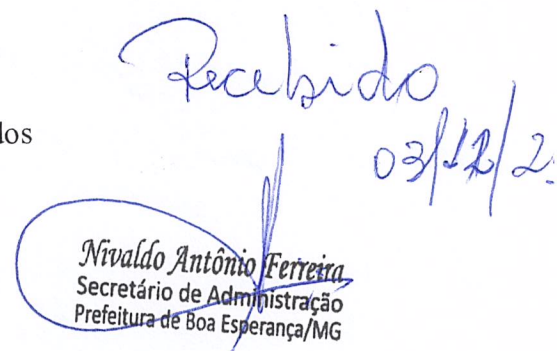 Recebido
03/12/2
dos
Nivaldo Antônio Ferreira
Secretário de Administração
Prefeitura de Boa Esperança/MG